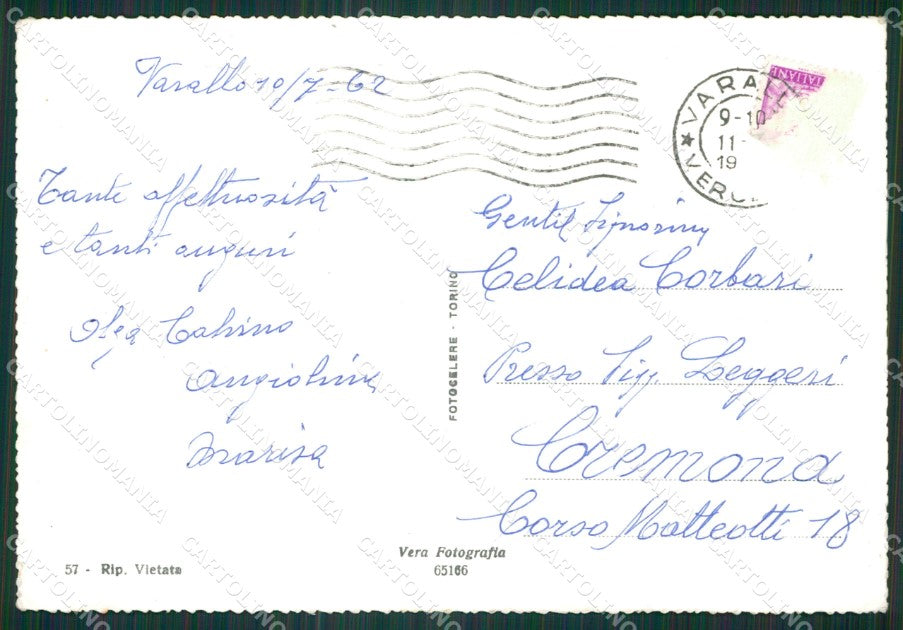 Varallo 10/7-62
Tante affettuosità
e tanti auguri
Olga Cabrino
Angiolina
Marisa
VARAL
9-10
11-
19
VERC
ITALIANE
Gentil Signorina
Celidea Corbari
Presso Sigg Leggeri
Cremona
Corso Matteotti 18
FOTOCELERE - TORINO
Vera Fotografia
65166
57 - Rip. Vietata
CARTOLINOMANIA